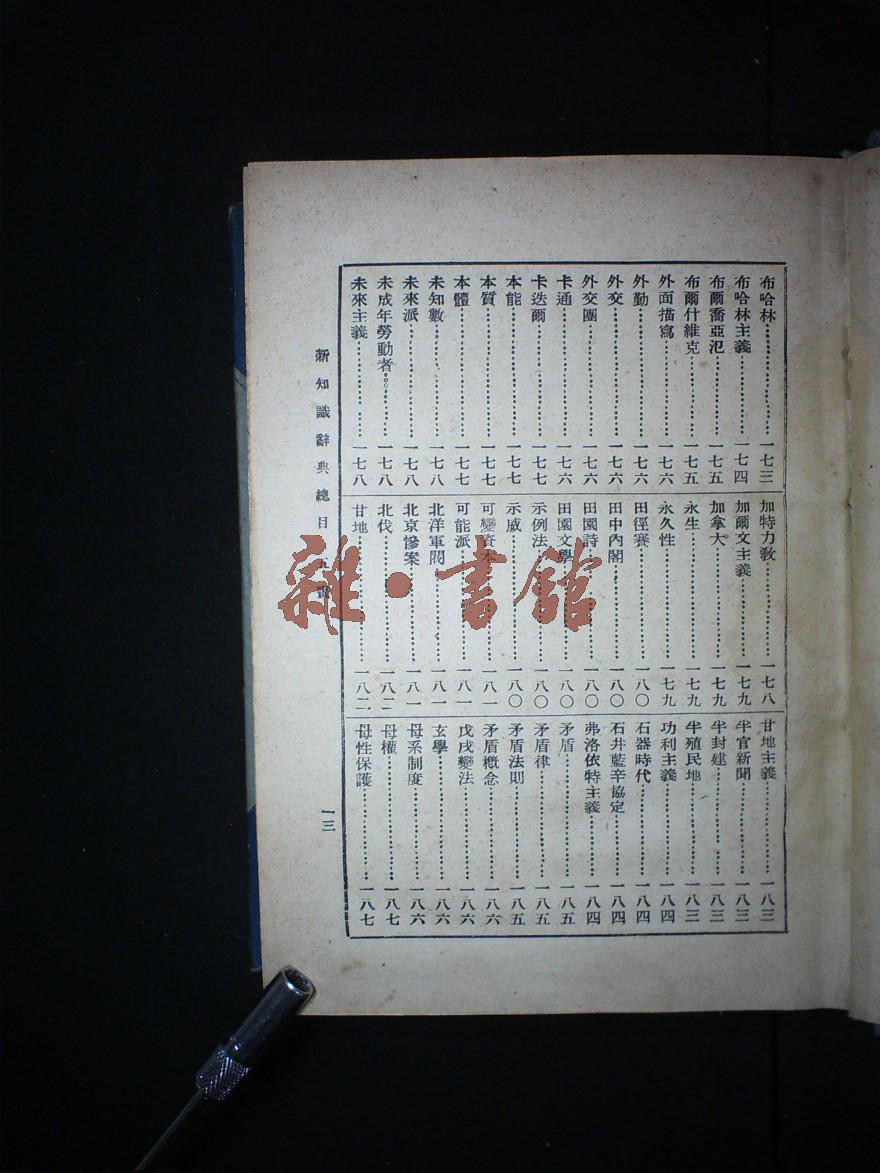 布哈林……一七三
布哈林主義……一七四
布爾喬亞氾……一七五
布爾什維克……一七五
外面描寫……一七六
外勤……一七六
外交……一七六
外交團……一七六
卡通……一七六
卡迭爾……一七七
本能……一七七
本質……一七七
本體……一七七
未知數……一七八
未來派……一七八
未成年勞動者……一七八
未來主義……一七八
加特力教……一七八
加爾文主義……一七九
加拿大……一七九
永生……一七九
永久性……一七九
田徑賽……一八〇
田中內閣……一八〇
田園詩……一八〇
田園文學……一八〇
示例法……一八〇
示威……一八〇
可變資本……一八一
可能派……一八一
北洋軍閥……一八一
北京慘案……一八一
北伐……一八二
甘地……一八二
甘地主義……一八三
半官新聞……一八三
半封建……一八三
半殖民地……一八三
功利主義……一八四
石器時代……一八四
石井藍辛協定……一八四
弗洛依特主義……一八四
矛盾……一八五
矛盾律……一八五
矛盾法則……一八五
矛盾概念……一八六
戊戌變法……一八六
玄學……一八六
母系制度……一八六
母權……一八七
母性保護……一八七
新知識辭典總目 五畫
一三
雜·書館